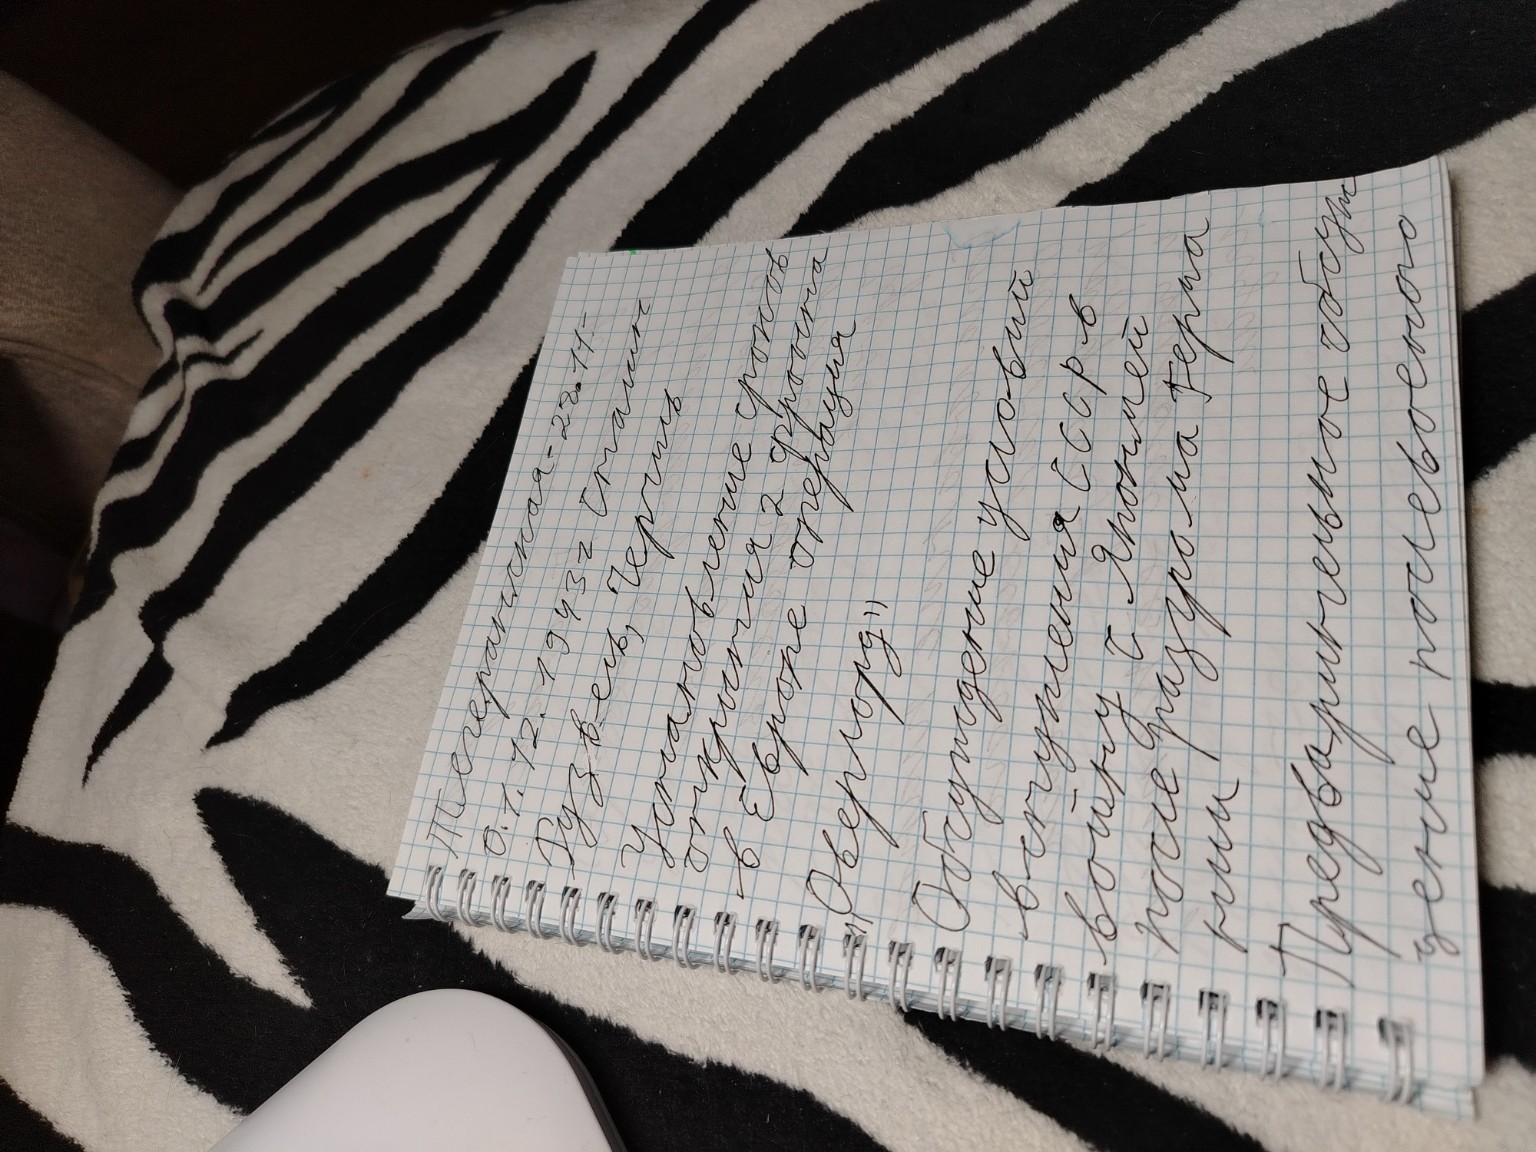 Тегеранская-28.11-
0.1.12.1943г Сталин
Рузвель, Черчиль
Установление сроков
открытия 2 фронта
в Европе операция
"Оверлорд"
Обсуждение условий
вступления СССР в
войну с Японией
после разгрома Герма
нии
Предварительное обсуж
дение послевоеного